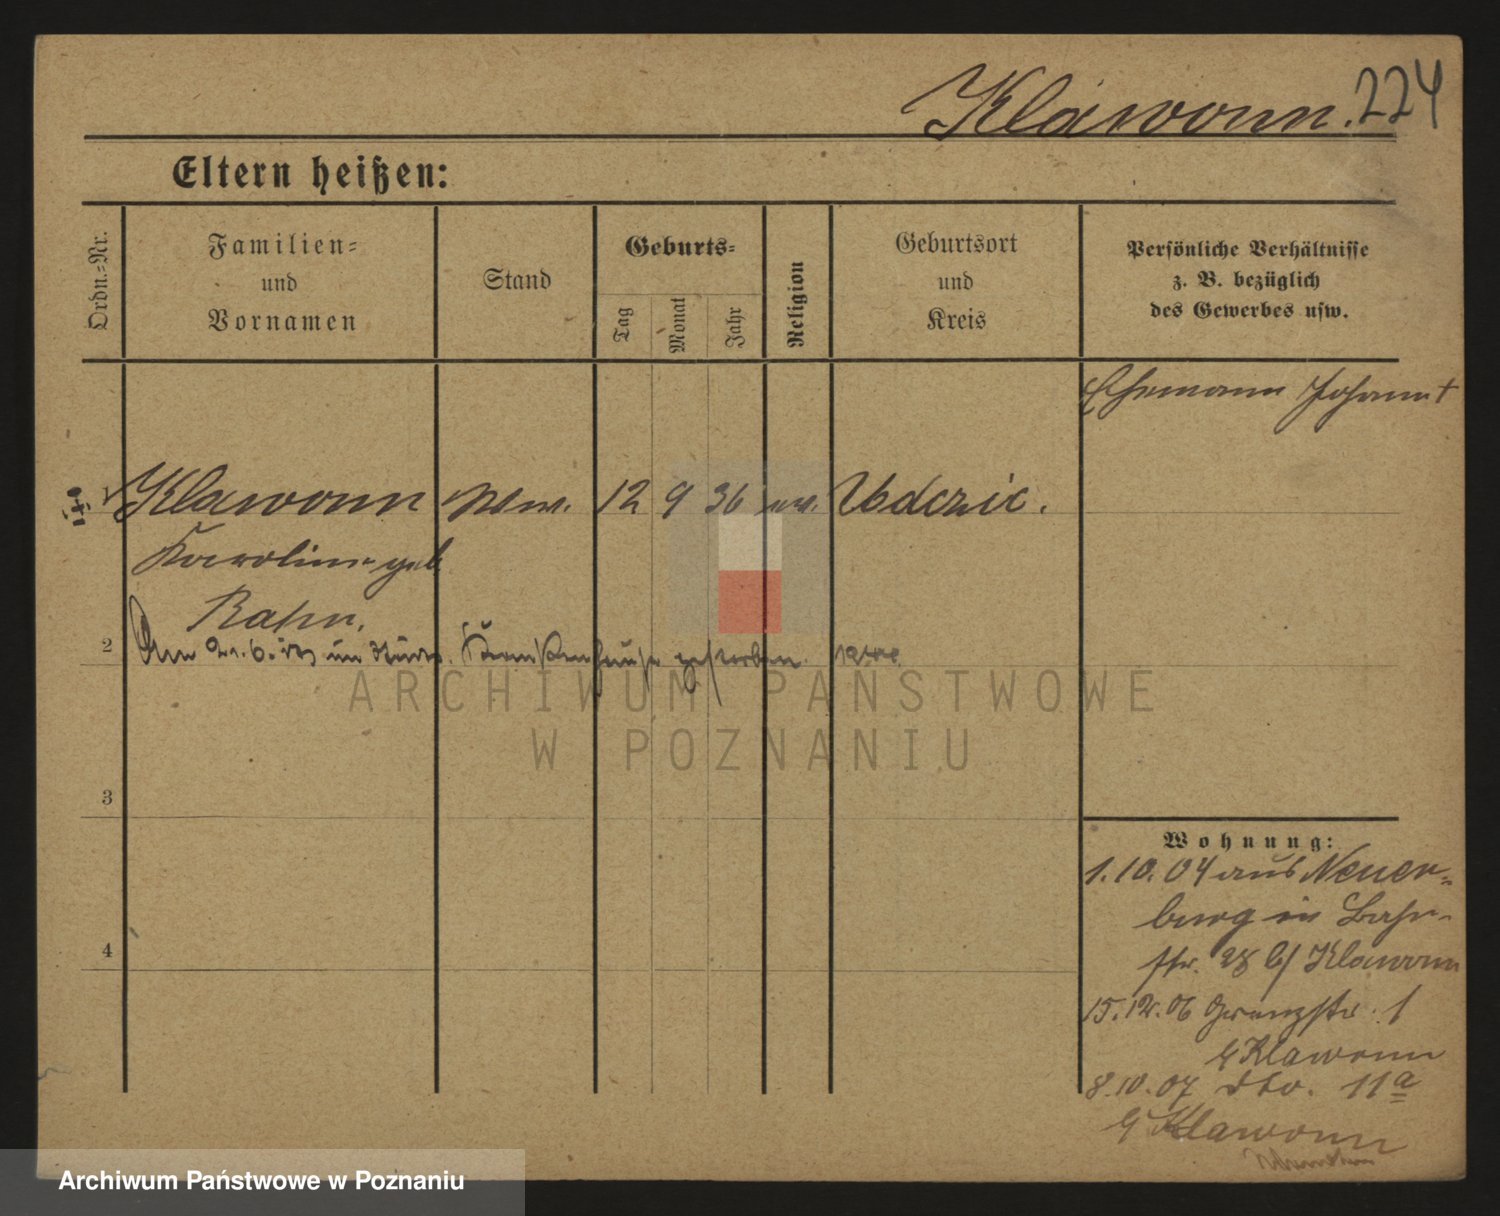 Klawonn. 224
Eltern heißen:
Ordn.=Nr.
Familien=
und
Vornamen
Stand
Geburts=
Tag
Monat
Jahr
Religion
Geburtsort
und
Kreis
Persönliche Verhältnisse
z. B. bezüglich
des Gewerbes usw.
Ehemann Johann †
1 Klawonn Ww. 12 9 36 ev.
Karoline geb.
Rahn.
2 Am im Krankenhause gestorben.
3
4
Wohnung:
1.10.04 aus Neuer=
burg in Bahn-
str. 28 b/ Klawonn
15.12.06 Grenzstr. 1
b/ Klawonn
8.10.07 dto. 11a
b/ Klawonn
ARCHIWUM PAŃSTWOWE
W POZNANIU
Archiwum Państwowe w Poznaniu